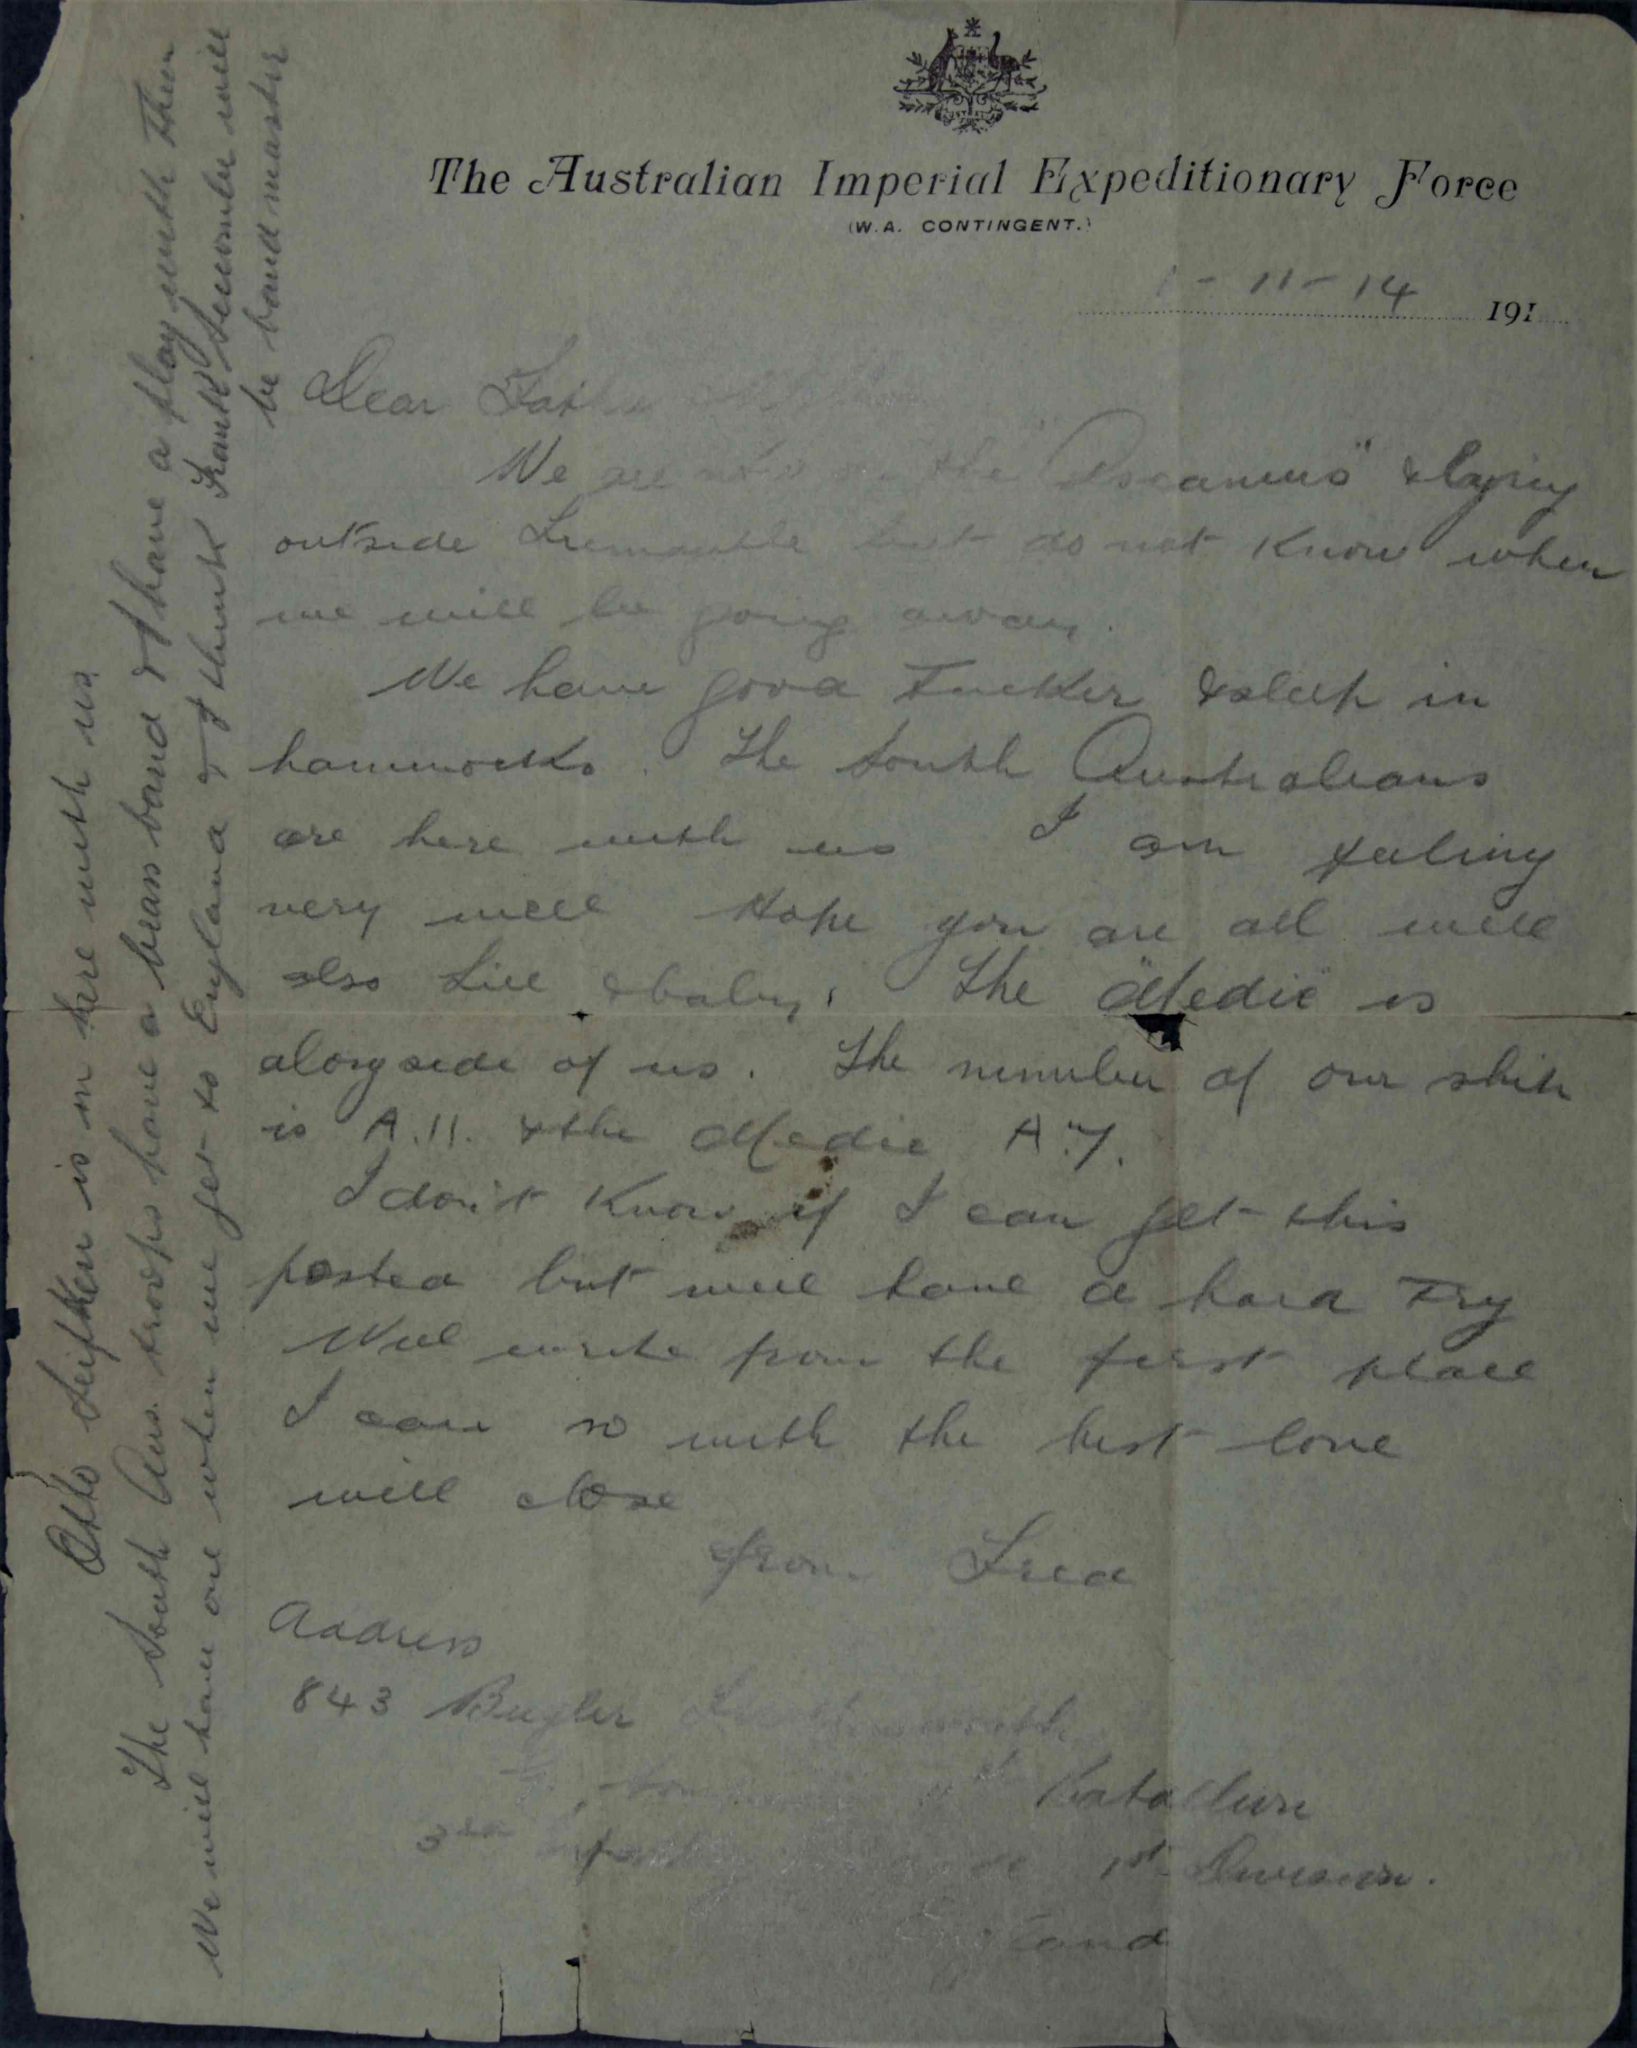 The Australian Imperial Expeditionary Force
(W.A. CONTINGENT.)
1-11-14 191
Dear Father
We are now on the "Ascanius" & laying
outside Fremantle but do not know when
we will be going away.
We have good Tucker & sleep in
hammocks. The South Australians
are here with us I am feeling
very well Hope you are all well
also Lill & baby. The "Medic" is
alongside of us. The number of our ship
is A.11. & the Medic A.7.
I don't know if I can get this
posted but will have a hard Try
Will write from the first place
I can so with the best love
will close
from Fred
Address
843 Bugler
Battalion
3rd 1st Division.
Otto Seifken is in here with us
The South Aus. troops have a brass band & I have a play with Them
We will have one when we get to England & I think Frank will
be band master